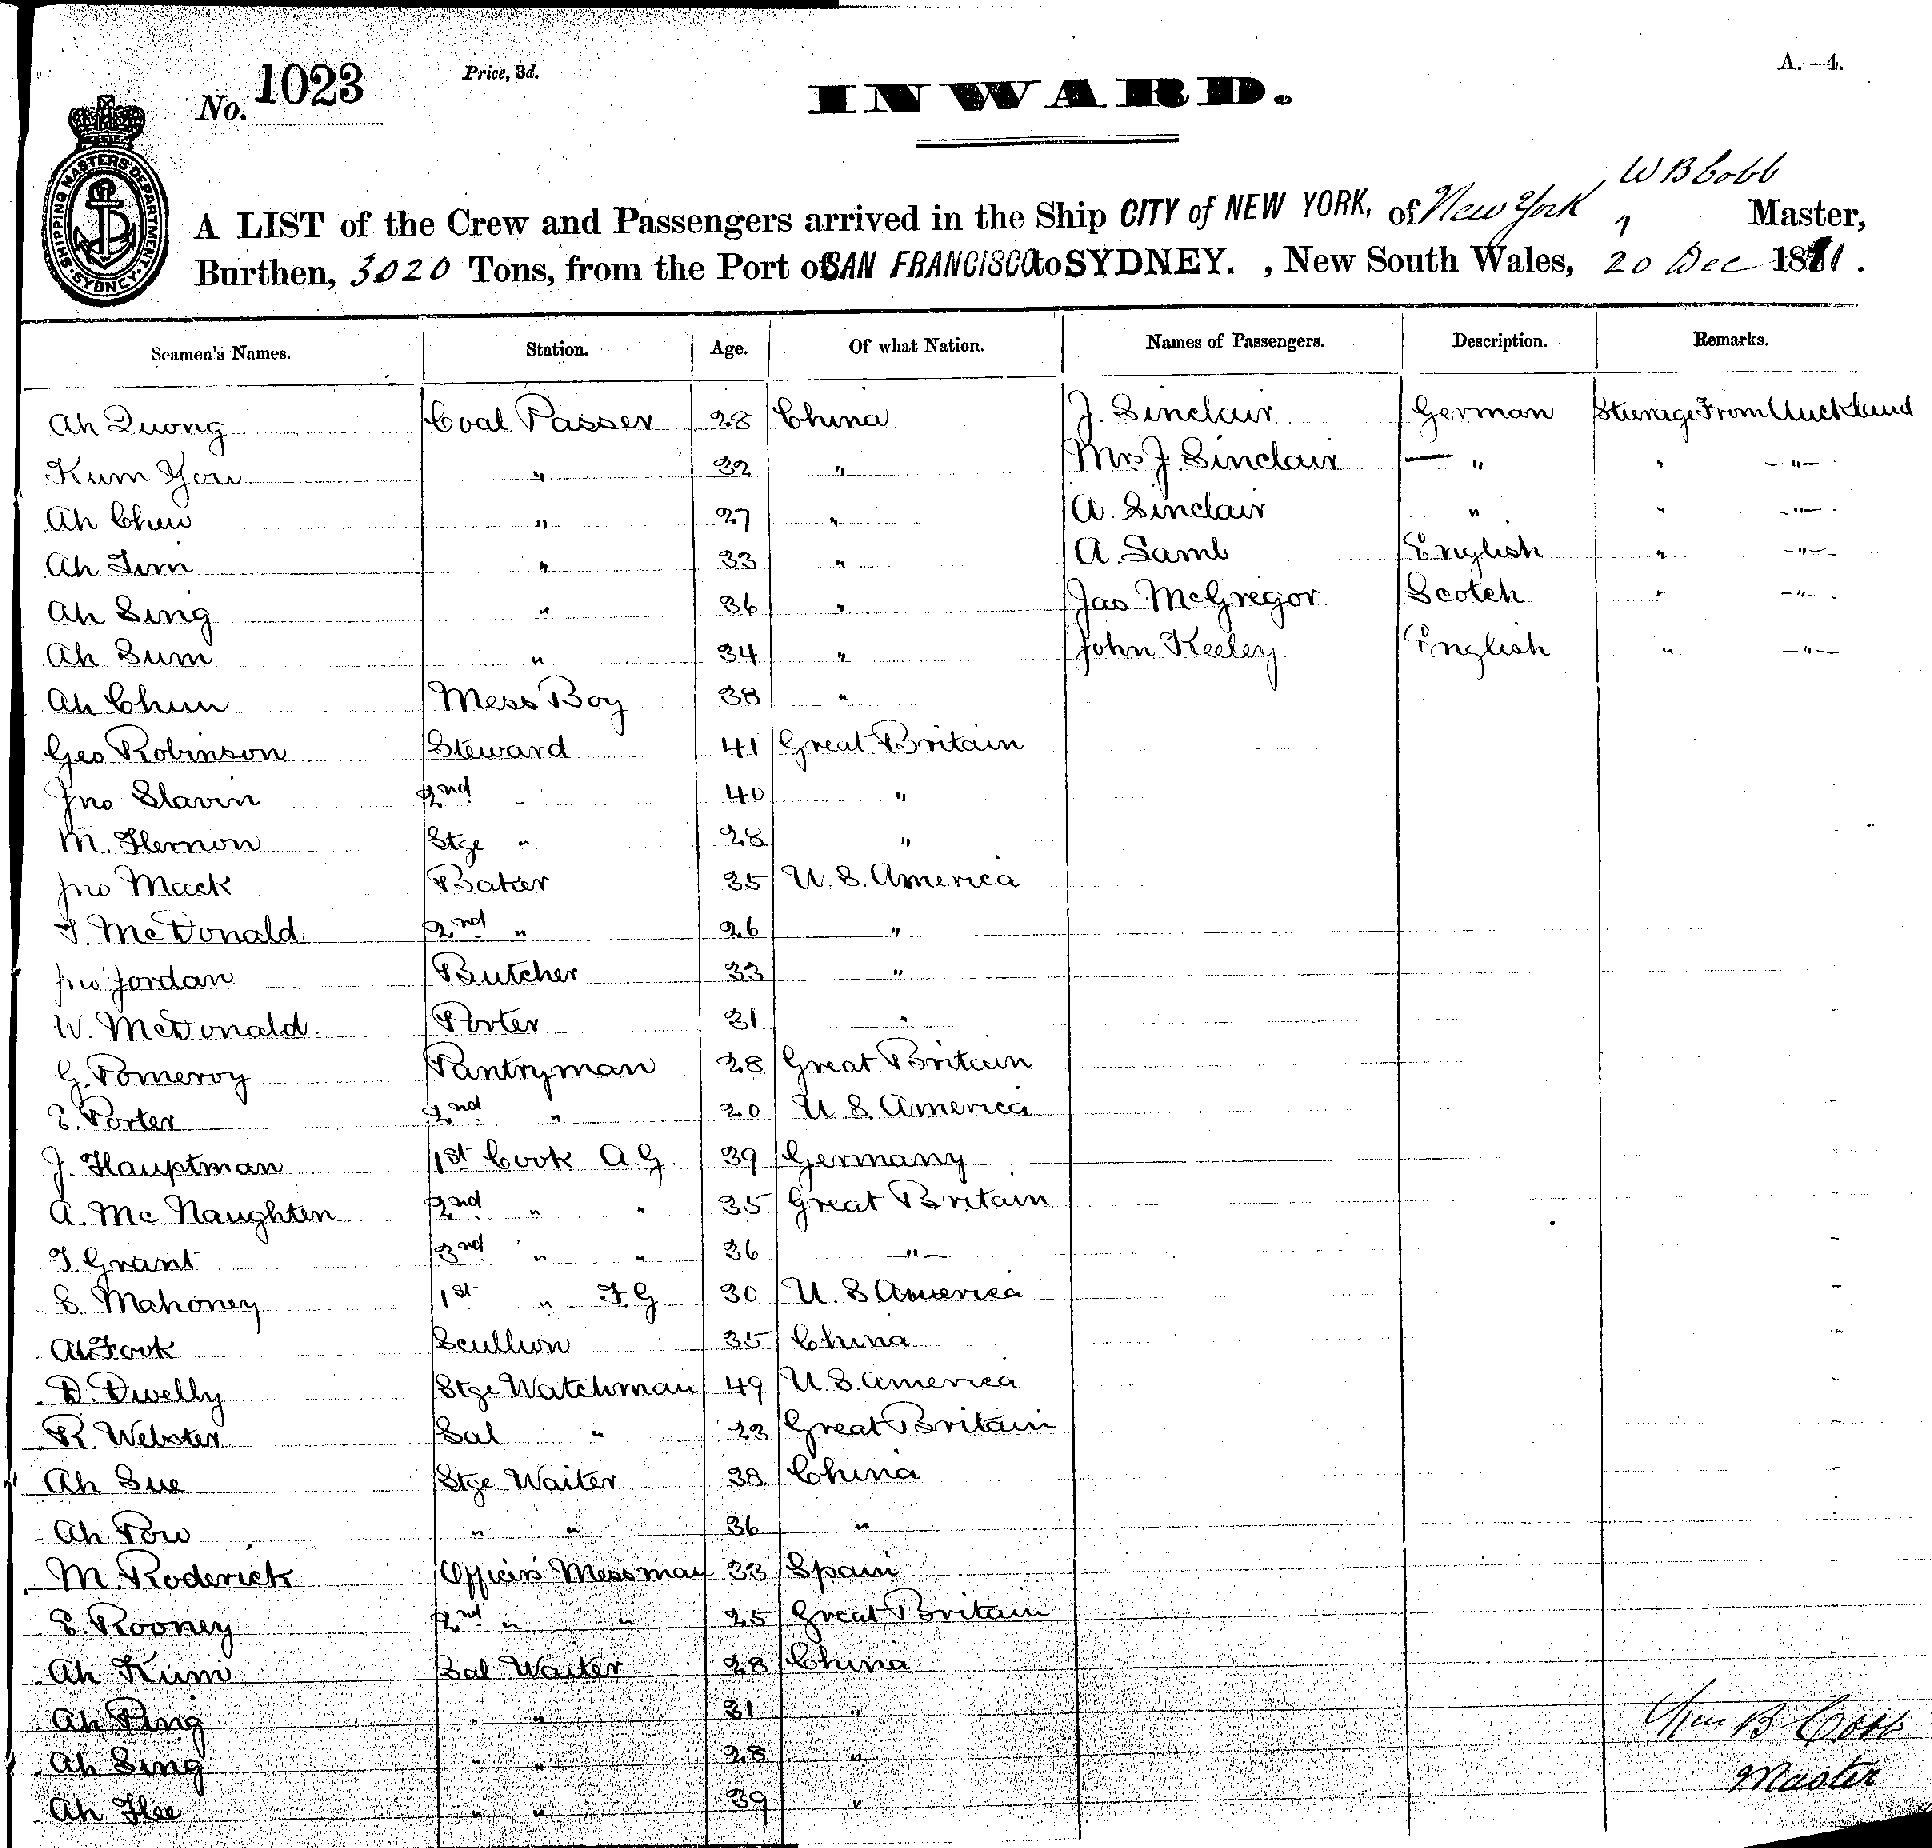 No. 1023
Price, 3d.
A.—4.
INWARD.
SHIPPING MASTERS DEPARTMENT SYDNEY
W B Cobb
A LIST of the Crew and Passengers arrived in the Ship CITY of NEW YORK, of New York, Master,
Burthen, 3020 Tons, from the Port of SAN FRANCISCO to SYDNEY. , New South Wales, 20 Dec 1881.
Seamen's Names. Station. Age. Of what Nation. Names of Passengers. Description. Remarks.
Ah Quong Coal Passer 28 China J. Sinclair German Steerage From Auckland
Kum You " 32 " Mrs J. Sinclair — " " — " —
Ah Chew " 27 " A. Sinclair " " — " —
Ah Jim " 33 " A. Samb English " — " —
Ah Sing " 36 " Jas McGregor Scotch " — " —
Ah Sum " 34 " John Keeley English " — " —
Ah Chun Mess Boy 38 "
Geo Robinson Steward 41 Great Britain
Jno Slavin 2nd " 40 "
M. Hernon Stge " 28 "
Jno Mack Baker 35 U. S. America
T. McDonald 2nd " 26 "
Jno Jordan Butcher 33 "
W. McDonald Porter 31 "
G. Pomeroy Pantryman 28 Great Britain
E. Porter 2nd " 20 U S America
J. Hauptman 1st Cook A G 39 Germany
A. Mc Naughten 2nd " " 35 Great Britain
T. Grant 3rd " " 36 — " —
C. Mahoney 1st " F G 30 U. S America
Ah Fook Scullion 35 China
D. Dwelly Stge Watchman 49 U. S. America
R. Webster Sal " 23 Great Britain
Ah Sue Stge Waiter 38 China
Ah Pow " " 36 "
M. Roderick Officers Messman 33 Spain
E. Rooney 2nd " " 25 Great Britain
Ah Kum Sal Waiter 28 China
Ah Ping " " 31 "
Ah Sing " " 28 "
Ah Hee " " 39 "
B Cobb
Master